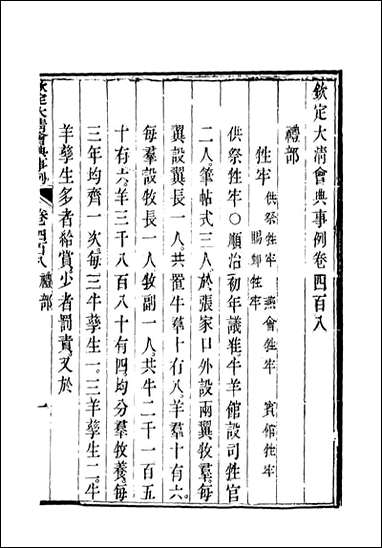 欽定大清會典事例卷四百八
禮部
牲牢 供祭牲牢 燕會牲牢 賓館牲牢
賜䘏牲牢
供祭牲牢○順治初年議准牛羊館設司牲官
二人筆帖式三人於張家口外設兩翼牧羣每
翼設翼長一人共置牛羣十有八羊羣十有六
每羣設牧長一人牧副一人共牛二千一百五
十有六羊三千八百八十有四均分羣牧養每
三年均齊一次每三牛孳生一三羊孳生二牛
羊孳生多者給賞少者罰責又於
欽定大清會典事例 卷四百八 禮部 一